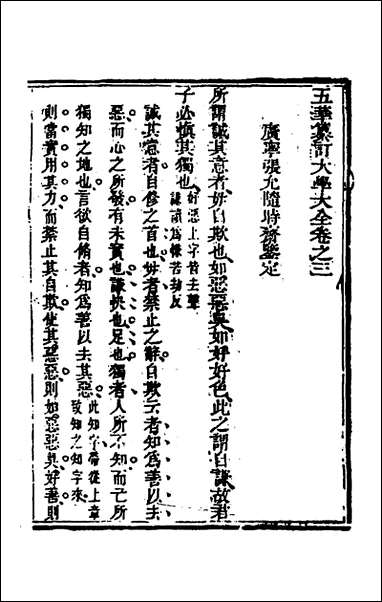 五華纂訂大學大全卷之三
廣寧張允隨時齋鑒定
所謂誠其意者毋自欺也如惡惡臭如好好色此之謂自謙故君
子必慎其獨也
好惡上字皆去聲
謙讀為慊苦劫反
誠其意者自修之首也毋者禁止之辭自欺云者知為善以去
惡而心之所發有未實也謙快也足也獨者人所不知而己所
獨知之地也言欲自脩者知為善以去其惡
此知字帶從上章
致知之知字來
則當實用其力而禁止其自欺使其惡惡則如惡惡臭好善則